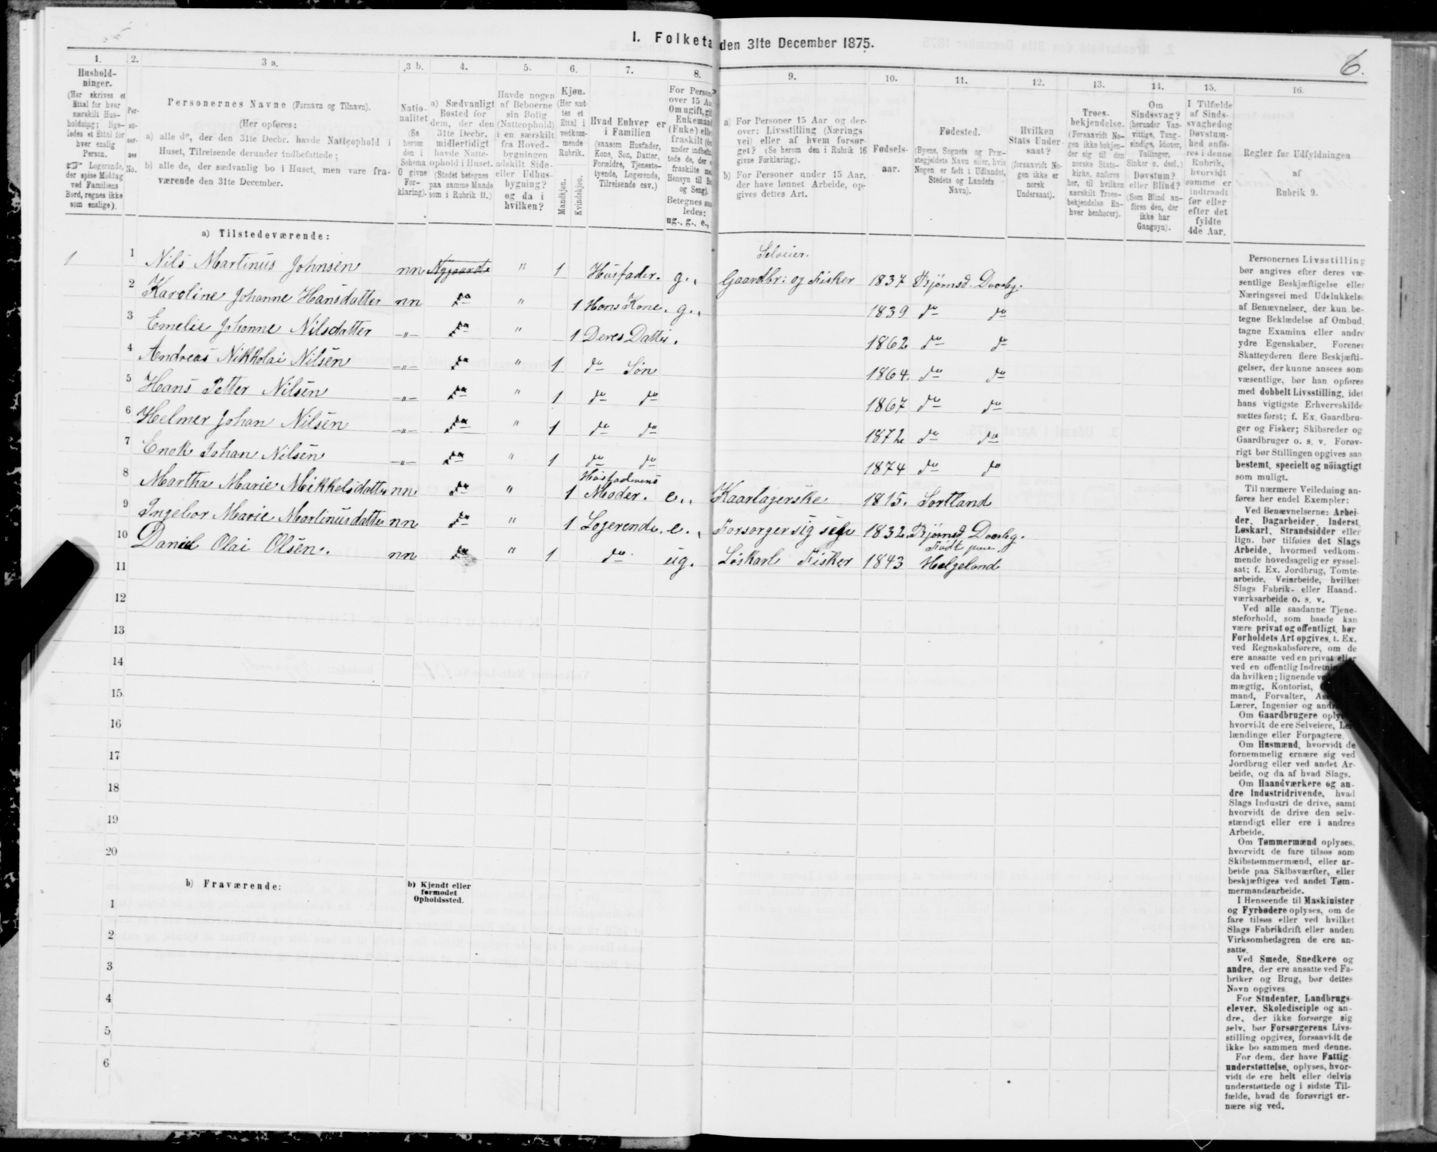 I. Folketa den 31te December 1875.
6.
1. 2. 3 a. 3 b. 4. 5. 6. 7. 8. 9. 10. 11. 12. 13. 14. 15. 16.
Personernes Navne (Fornavn og Tilnavn).
(Her opføres:
a) alle de, der den 31te Decbr. havde Natteophold i Huset, Tilreisende derunder indbefattede;
b) alle de, der sædvanlig bo i Huset, men vare fraværende den 31te December.
Hvad Enhver er i Familien
Fødsels-aar.
Fødested.
Hvilken Stats Undersaat?
Troesbekjendelse.
Regler for Udfyldningen af Rubrik 9.
a) Tilstedeværende:
Selveier.
1 1 Nils Martinus Johnsen nn Nygaards " 1 Husfader. g. Gaardbr: og Fisker 1837 Bjørnsd. Dverbg.
2 Karoline Johanne Hansdatter nn do " 1 Hans Kone. g. 1839 do do
3 Emelie Johanne Nilsdatter -"- do " 1 Deres Datter. 1862 do do
4 Andreas Nikkolai Nilsen -"- do " 1 do Søn 1864. do do
5 Hans Petter Nilsen -"- do " 1 do do 1867 do do
6 Helmer Johan Nilsen -"- do " 1 do do 1872 do do
7 Enok Johan Nilsen -"- do " 1 do do 1874 do do
Husfaderens
8 Martha Marie Mikkelsdatter nn do " 1 Moder. e. Kaartagerske 1815. Sortland
9 Ingebor Marie Martinusdatter nn do " 1 Logerende. e. Forsørger sig selv 1832 Bjørnsd. Dverbg.
10 Daniel Olai Olsen. nn do " 1 do ug. Løskarl Fisker 1843 Helgeland
11
12
13
14
15
16
17
18
19
20
b) Fraværende:
b) Kjendt eller formodet Opholdssted.
1
2
3
4
5
6
Personernes Livsstilling
bør angives efter deres væ-
sentlige Beskjæftigelse eller
Næringsvei med Udelukkelse
af Benævnelser, der kun be-
tegne Beklædelse af Ombud,
tagne Examina eller andre
ydre Egenskaber. Forener
Skatteyderen flere Beskjæfti-
gelser, der kunne ansees som
væsentlige, bør han opføres
med dobbelt Livsstilling, idet
hans vigtigste Erhvervskilde
sættes først; f. Ex. Gaardbru-
ger og Fisker; Skibsreder og
Gaardbruger o. s. v. Forøv-
rigt bør Stillingen opgives saa
bestemt, specielt og nöiagtigt
som muligt.
Til nærmere Veiledning an-
føres her endel Exempler:
Ved Benævnelserne: Arbei-
der, Dagarbeider, Inderst,
Løskarl, Strandsidder eller
lign. bør tilføies det Slags
Arbeide, hvormed vedkom-
mende hovedsagelig er syssel-
sat; f. Ex. Jordbrug, Tomte-
arbeide, Veiarbeide, hvilket
Slags Fabrik- eller Haand-
værksarbeide o. s. v.
Ved alle saadanne Tjene-
steforhold, som baade kan
være privat og offentligt, bør
Forholdets Art opgives, f. Ex.
ved Regnskabsførere, om de
Om Husmænd, hvorvidt de
fornemmelig ernære sig ved
Jordbrug eller ved andet Ar-
beide, og da af hvad Slags.
Om Haandværkere og an-
dre Industridrivende, hvad
Slags Industri de drive, samt
hvorvidt de drive den selv-
stændigt eller ere i andres
Arbeide.
Om Tømmermænd oplyses,
hvorvidt de fare tilsøs som
Skibstømmermænd, eller ar-
beide paa Skibsværfter, eller
beskjæftiges ved andet Tøm-
mermandsarbeide.
I Henseende til Maskinister
og Fyrbødere oplyses, om de
fare tilsøs eller ved hvilket
Slags Fabrikdrift eller anden
Virksomhedsgren de ere an-
satte.
Ved Smede, Snedkere og
andre, der ere ansatte ved Fa-
briker og Brug, bør dettes
Navn opgives.
For Studenter, Landbrugs-
elever, Skoledisciple og an-
dre, der ikke forsørge sig
selv, bør Forsørgerens Livs-
stilling opgives, forsaavidt de
ikke bo sammen med denne.
For dem, der have Fattig-
understøttelse, oplyses, hvor-
vidt de ere helt eller delvis
understøttede og i sidste Til-
fælde, hvad de forøvrigt er-
nære sig ved.